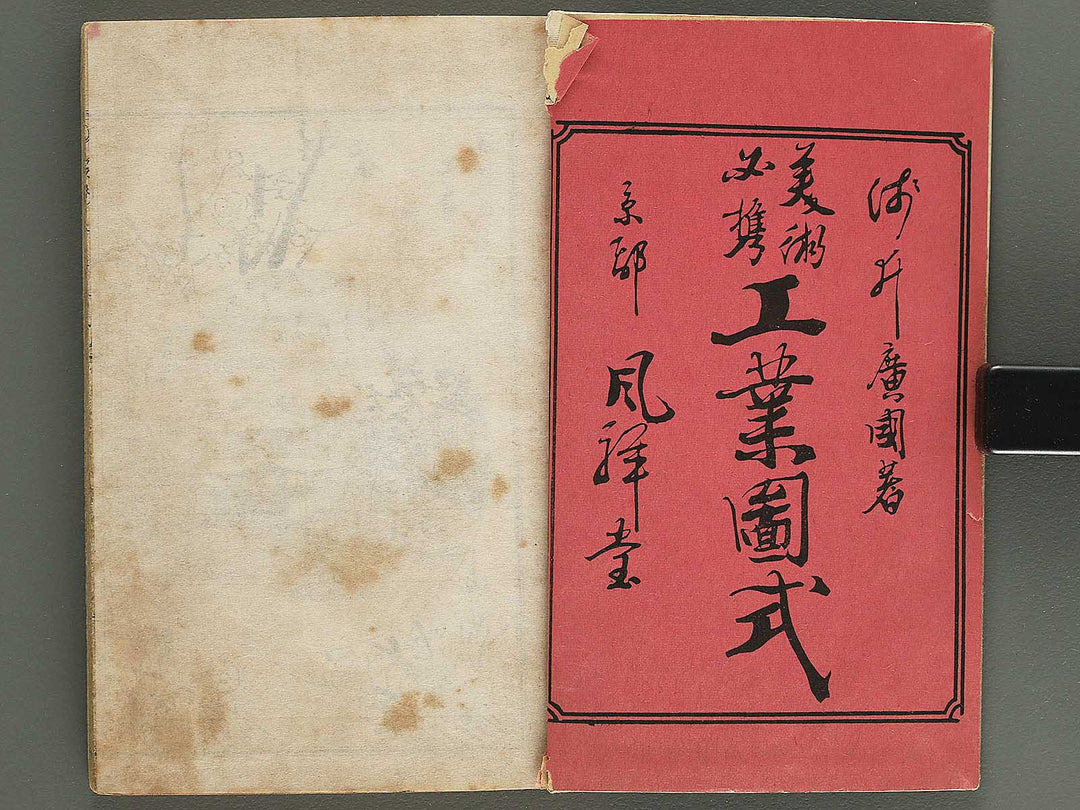 浅井廣國著
美術
必携
工業圖式
京都 風祥堂